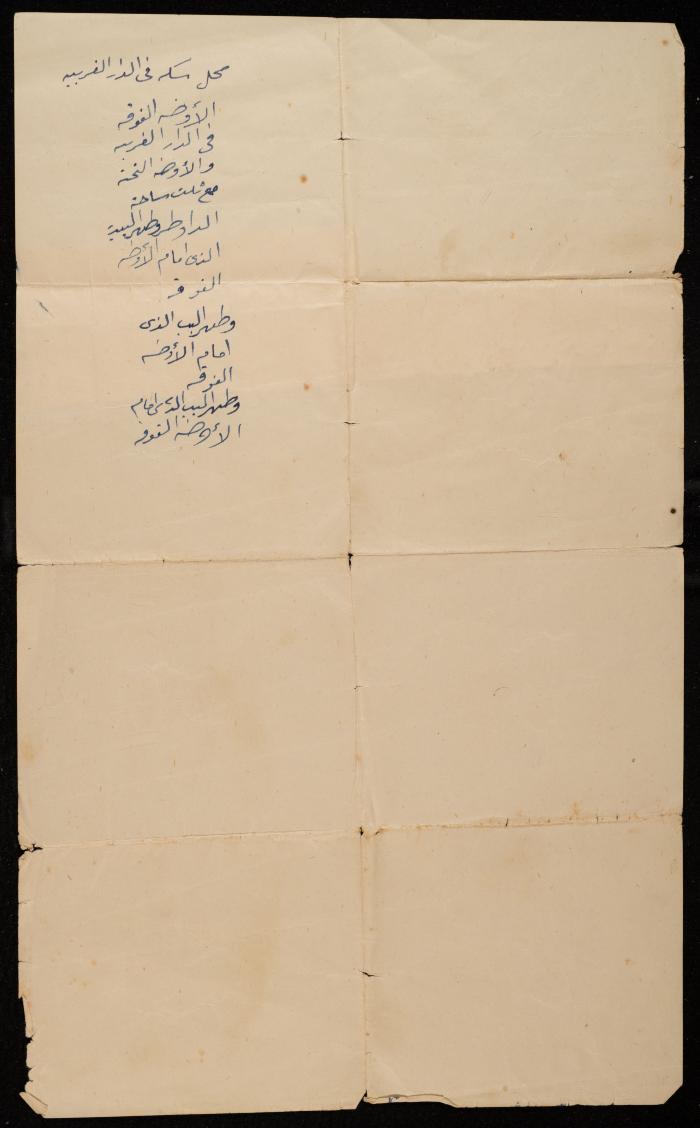 محل سكنه في الدار الغربيه
الأوضه الفوقه
في الدار الغربيه
والأوضه التحته
مع ثلث ساحة
الدار وظهر البيت
الذي امام الأوضه
الفوقه
وظهر البيت الذي
امام الأوضه
الفوقه
وظهر البيت الذي امام
الأوضه الفوقه